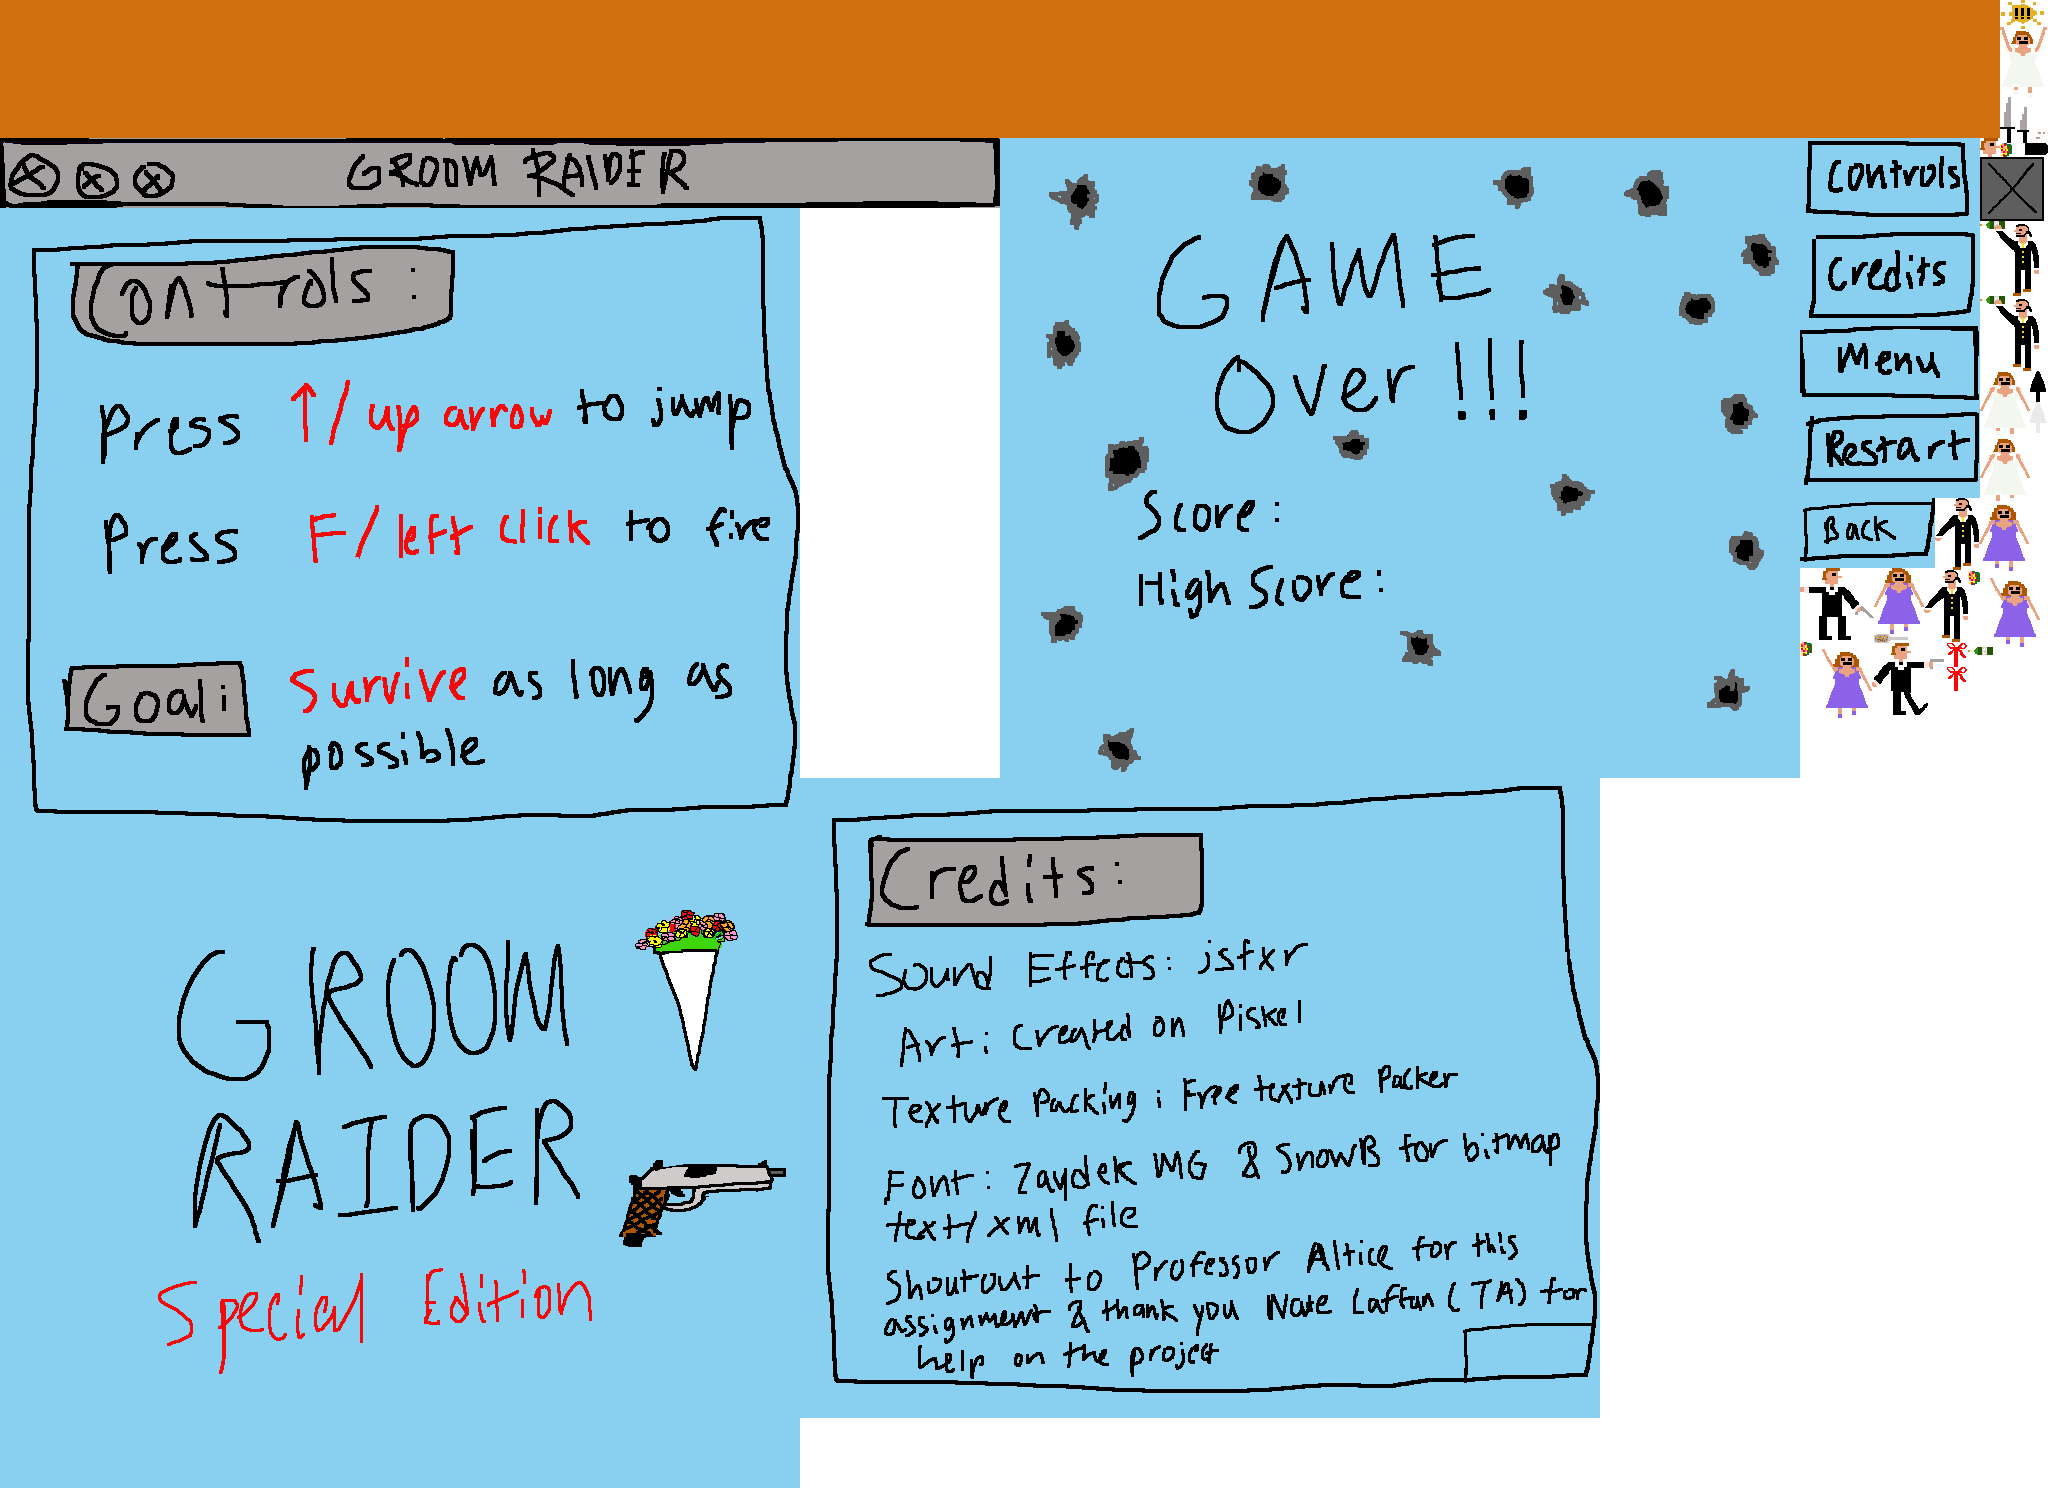 GROOM RAIDER
Controls:
Press ↑/up arrow to jump
Press F/left click to fire
Goal: Survive as long as
possible
GAME
Over!!!
Score:
High Score:
Controls
Credits
Menu
Restart
Back
GROOM
RAIDER
Special Edition
Credits:
Sound Effects: jsfxr
Art: Created on Piskel
Texture Packing: Free texture Packer
Font: Zaydek MG & SnowB for bitmap
text/xml file
Shoutout to Professor Altice for this
assignment & thank you Nate Laffan (TA) for
help on the project